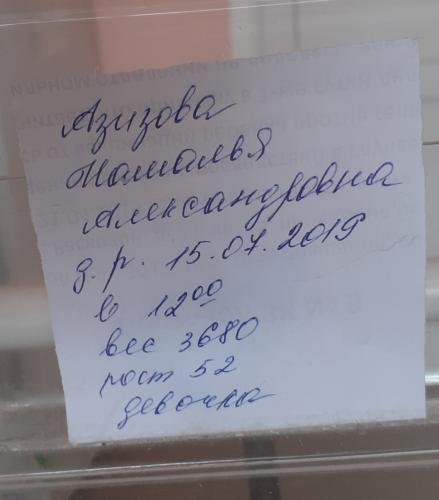 Азизова
Наталья
Александровна
д.р. 15.07.2019
в 12⁰⁰
вес 3680
рост 52
девочка